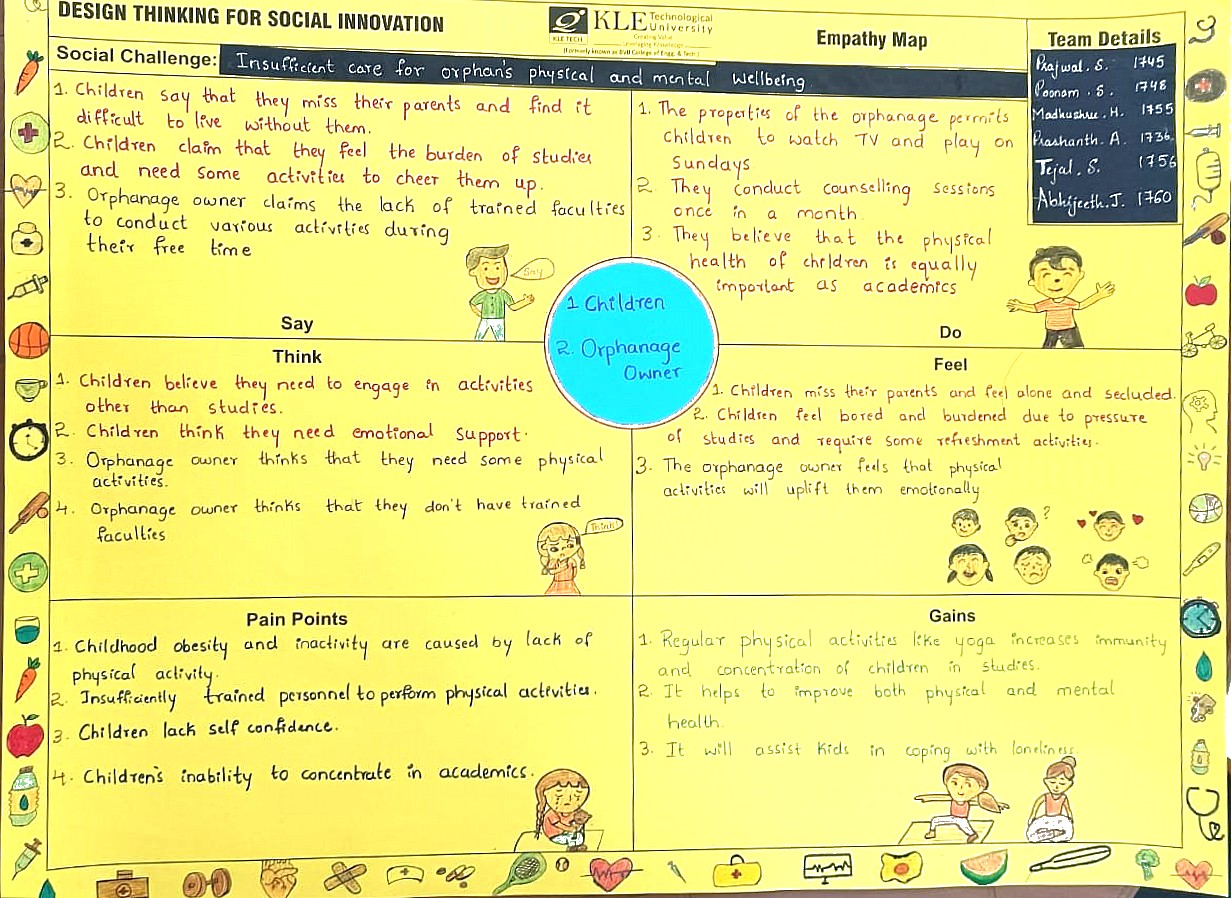 DESIGN THINKING FOR SOCIAL INNOVATION
KLE TECH
KLE Technological
University
Creating Value
Leveraging Knowledge
(Formerly known as BVB College of Engg. & Tech.)
Empathy Map
Team Details
Prajwal. S. 1745
Poonam . S. 1748
Madhushree. H. 1755
Prashanth. A. 1736.
Tejal. S. 1756
Abhijeeth. J. 1760
Social Challenge: Insufficient care for orphan's physical and mental wellbeing.
1. Children say that they miss their parents and find it
difficult to live without them.
2. Children claim that they feel the burden of studies
and need some activities to cheer them up.
3. Orphanage owner claims the lack of trained faculties
to conduct various activities during
their free time
Say
Say
1. The properties of the orphanage permits
Children to watch TV and play on
Sundays
2. They conduct counselling sessions
once in a month.
3. They believe that the physical
health of children is equally
important as academics
Do
1 Children
2. Orphanage
Owner
Think
1. Children believe they need to engage in activities
other than studies.
2. Children think they need emotional support.
3. Orphanage owner thinks that they need some physical
activities.
4. Orphanage owner thinks that they don't have trained
faculties
Think!
Feel
1. Children miss their parents and feel alone and secluded.
2. Children feel bored and burdened due to pressure
of studies and require some refreshment activities.
3. The orphanage owner feels that physical
activities will uplift them emotionally
?
Pain Points
1. Childhood obesity and inactivity are caused by lack of
physical activity.
2. Insufficiently trained personnel to perform physical activities.
3. Children lack self confidence.
4. Children's inability to concentrate in academics.
Gains
1. Regular physical activities like yoga increases immunity
and concentration of children in studies.
2. It helps to improve both physical and mental
health.
3. It will assist kids in coping with loneliness.